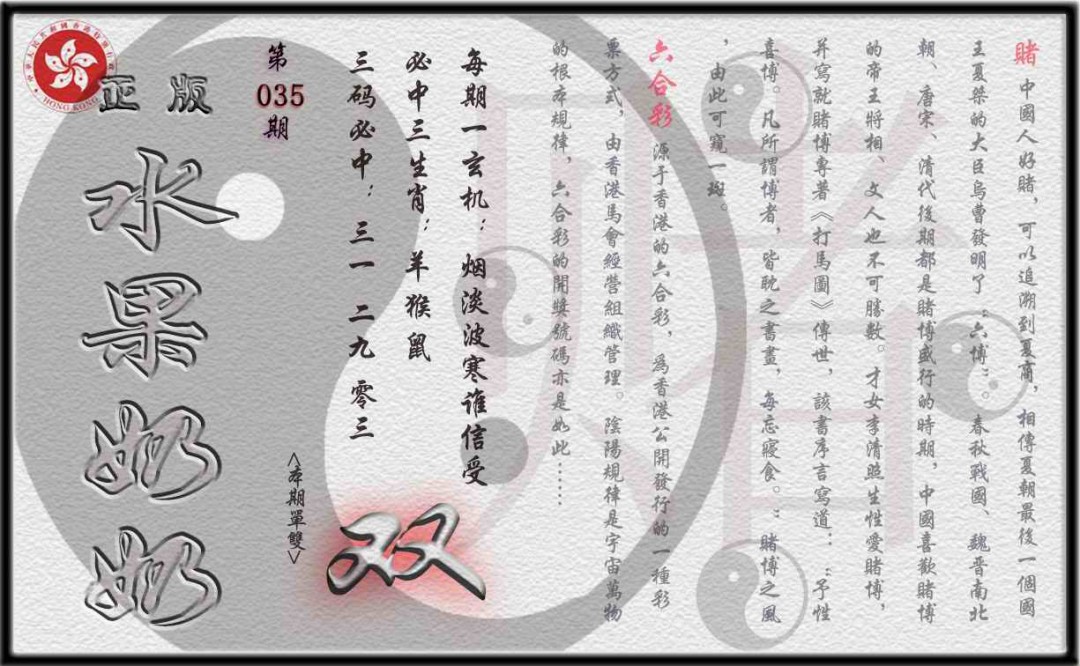 賭 中國人好賭，可以追溯到夏商，相傳夏朝最後一個國
王夏桀的大臣烏曹發明了“六博”。春秋戰國、魏晋南北
朝、唐宋、清代後期都是賭博盛行的時期，中國喜歡賭博
的帝王將相、文人也不可勝數。才女李清照生性愛賭博，
并寫就賭博專著《打馬圖》傳世，該書序言寫道：“予性
喜博。凡所謂博者，皆耽之書畫，每忘寢食。”賭博之風
，由此可窺一斑。
六合彩 源于香港的六合彩，爲香港公開發行的一種彩
票方式，由香港馬會經營組織管理。陰陽規律是宇宙萬物
的根本規律，六合彩的開獎號碼亦是如此……
每期一玄机：烟淡波寒谁信受
必中三生肖：羊猴鼠
三码必中：三一 二九 零三
双
<本期單雙>
第
035
期
正版
水果奶奶
HONG KONG